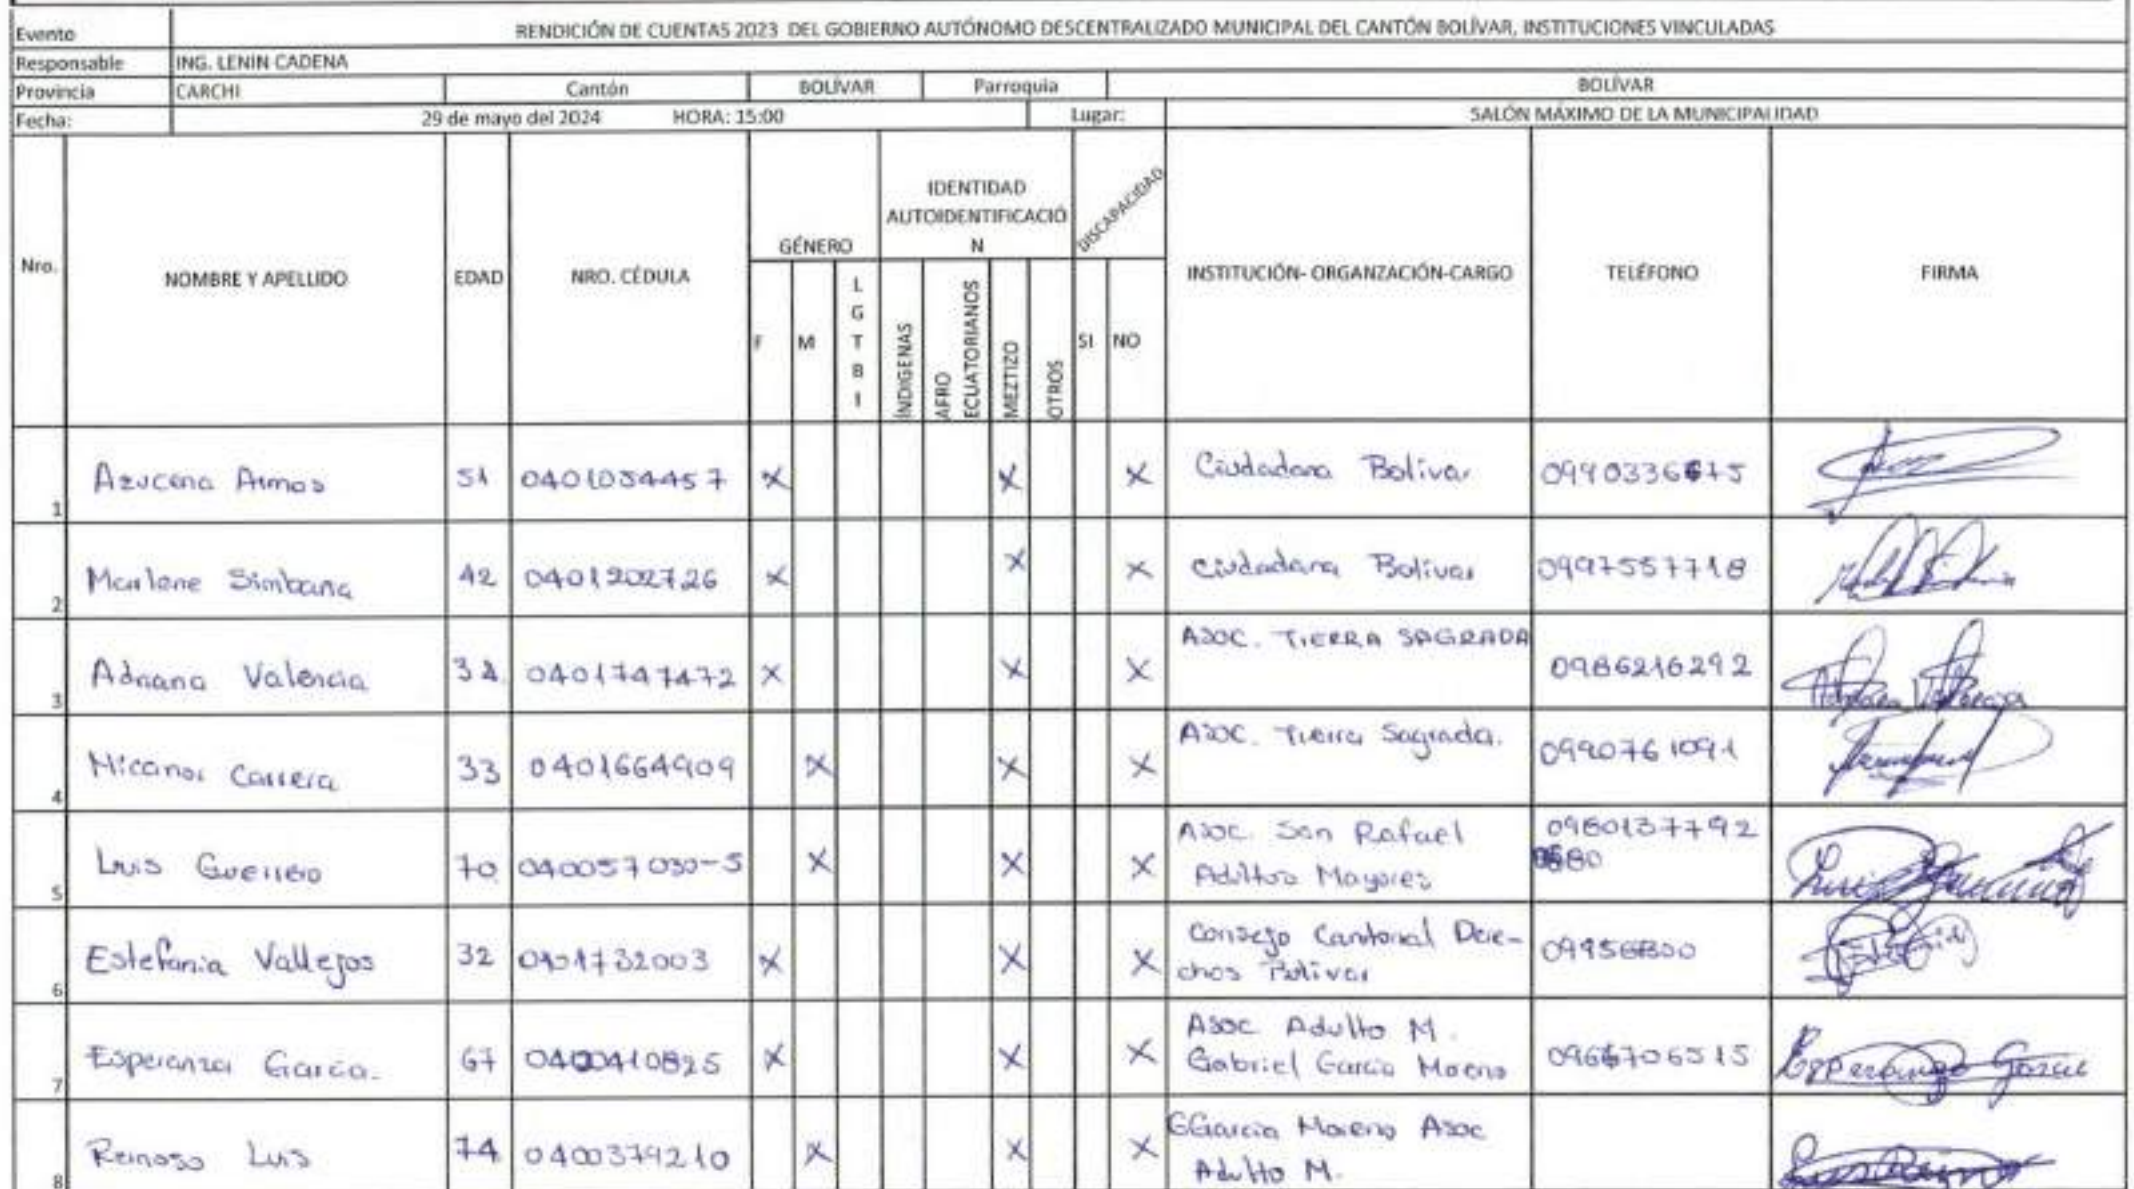 Evento RENDICIÓN DE CUENTAS 2023 DEL GOBIERNO AUTÓNOMO DESCENTRALIZADO MUNICIPAL DEL CANTÓN BOLÍVAR, INSTITUCIONES VINCULADAS
Responsable ING. LENIN CADENA
Provincia CARCHI Cantón BOLÍVAR Parroquia BOLÍVAR
Fecha: 29 de mayo del 2024 HORA: 15:00 Lugar: SALÓN MÁXIMO DE LA MUNICIPALIDAD
Nro. NOMBRE Y APELLIDO EDAD NRO. CÉDULA GÉNERO IDENTIDAD AUTOIDENTIFICACIÓN DISCAPACIDAD INSTITUCIÓN- ORGANZACIÓN-CARGO TELÉFONO FIRMA
F M LGTBI ÍNDIGENAS AFRO ECUATORIANOS MEZTIZO OTROS SI NO
1 Azucena Armas 51 0401034457 X X X Ciudadana Bolivar
2 Marlene Simbana 42 0401202726 X X X Ciudadana Bolivar 0997557718
3 Adriana Valencia 0401747472 X X X ASOC. TIERRA SAGRADA 0986216292
4 Nicanor Carrera 33 0401664909 X X X Asoc. Tierra Sagrada. 0990761091
5 Luis Guerrero 70 040057030-5 X X X Asoc. San Rafael 0980137792
Adultos Mayores
6 Estefania Vallejos 32 0401732003 X X X Consejo Cantonal Dere-
chos Bolivar
7 Esperanza Garcia. 67 0400410825 X X X Asoc Adulto M.
Gabriel Garcia Moreno
Esperanza Garcia
8 Reinoso Luis 74 0400379210 X X X GGarcia Moreno Asoc
Adulto M.